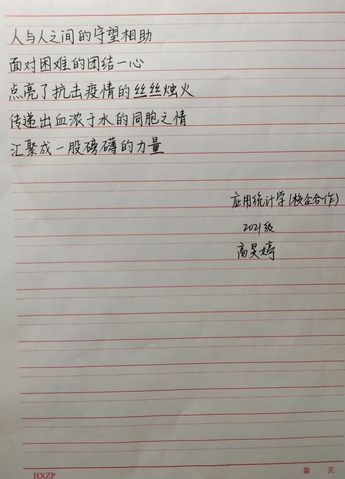 人与人之间的守望相助
面对困难的团结一心
点亮了抗击疫情的丝丝烛火
传递出血浓于水的同胞之情
汇聚成一股磅礴的力量
应用统计学(校企合作)
2021级
高昊婷
HXZP
第 页